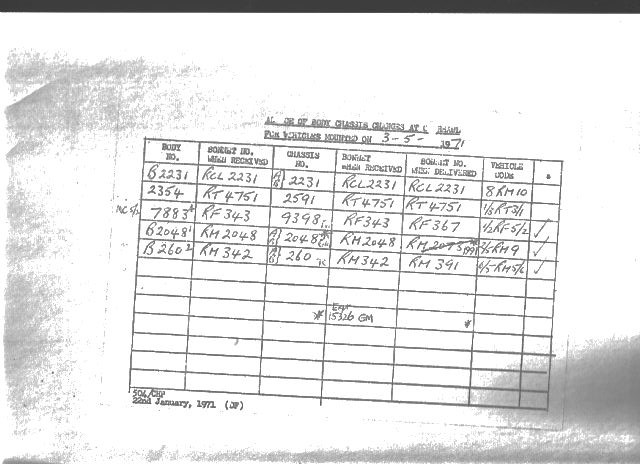 OF BODY CHASSIS CHANGES AT
FOR VEHICLES MOUNTED ON 3-5-1971
BODY NO. BONNET NO. WHEN RECEIVED CHASSIS NO. BONNET WHEN RECEIVED BONNET NO. WHEN DELIVERED VEHICLE CODE
B2231 RCL2231 2231 RCL2231 RCL2231 8RM10
2354 RT4751 2591 RT4751 RT4751 1/3RT3/1
7883 RF343 9398 RF343 RF367 1/2RF5/2 ✓
B2048 RM2048 2048 RM2048 RM 2/5RM9 ✓
B260 RM342 260 RM342 RM391 4/5RM5/6 ✓
* 15326 GM *
504/CHP
22nd January, 1971